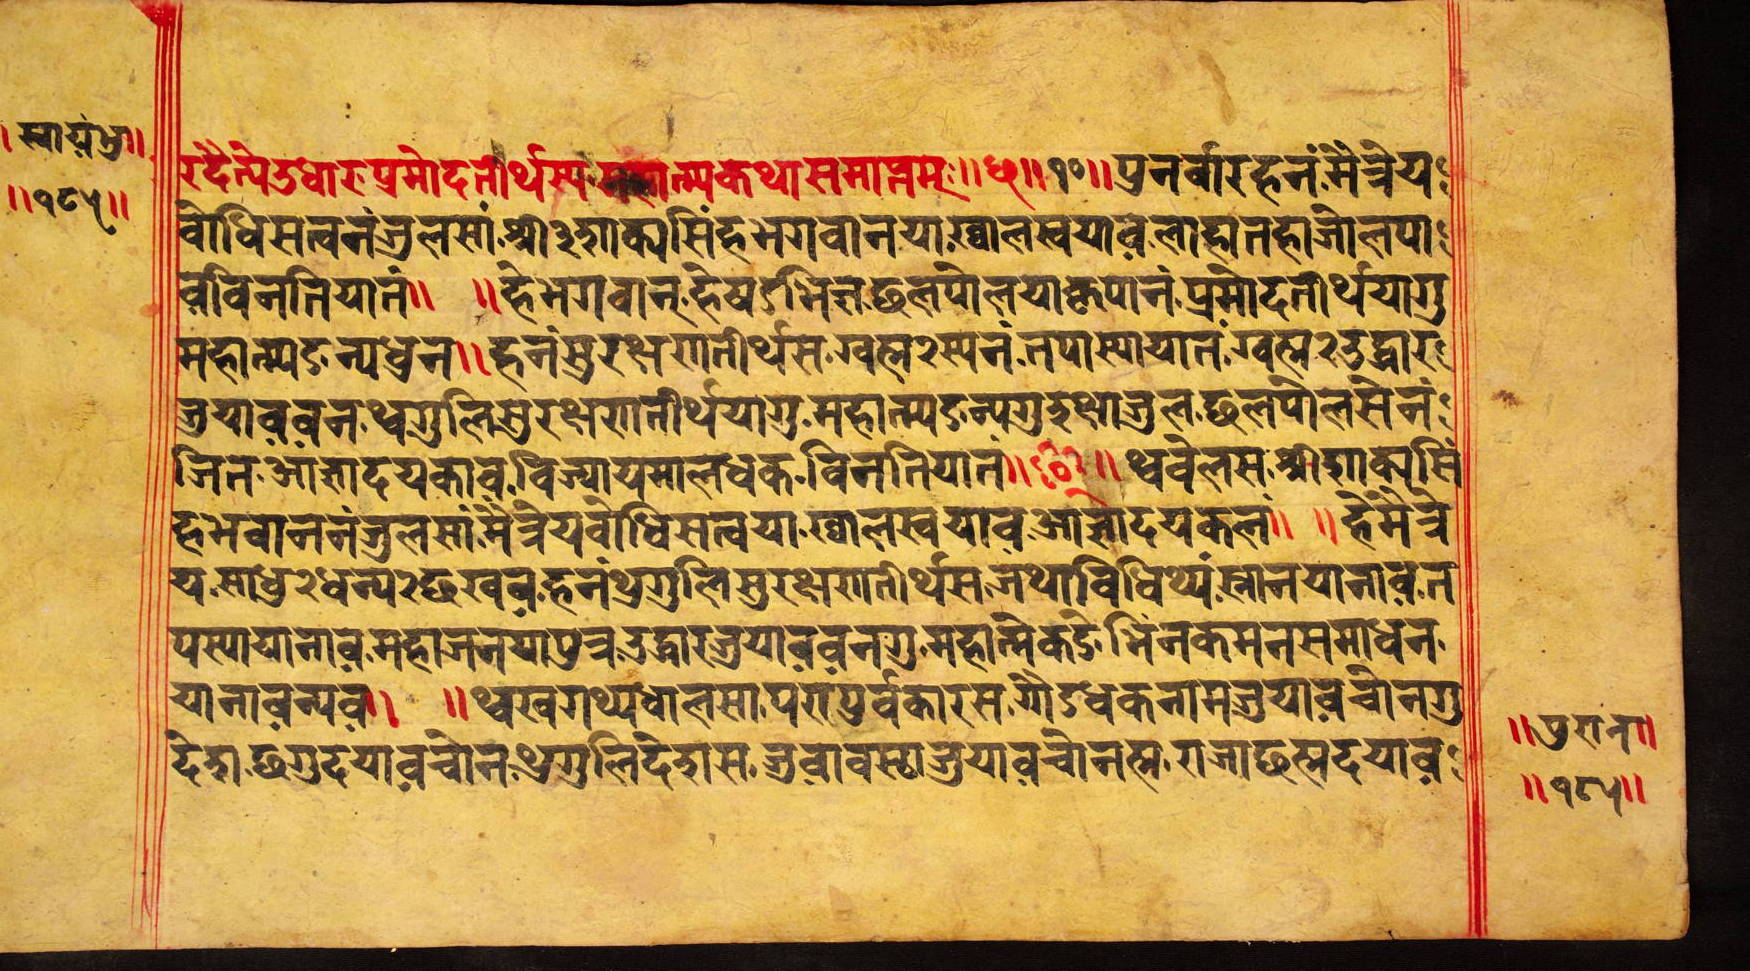 । स्वायंभु॥
॥१८५॥
रदैत्येउधार प्रमोदतीर्थस्य महात्म्यकथासमाप्तम्॥ ॥१०॥ पुनर्वारहनं मैत्रेय
वोधिसत्वनंजुलसां श्री३शाक्यसिंहभगवानया ख्वालस्वयाव लाहातहाजोलपा
वविनतियातं॥ ॥हेभगवान् हेषडभिज्ञ छलपोलयाकृपानं प्रमोदतीर्थयागु
महात्म्यङन्यधुन॥ हनंसुरक्षणातीर्थस ग्वह्म२स्यनं तपास्यायातं ग्वह्म२उद्धार
जुयाववन थ्वगुलिसुरक्षणातीर्थयागु महात्म्यङन्यगुइक्षाजुल छलपोलसेनं
जित आज्ञादयकाव विज्यायमालधक विनतियातं॥ ॥ थ्ववेलस श्रीशाक्यसिं
हभवाननंजुलसां मैत्रेयवोधिसत्वया ख्वालस्वयाव आज्ञादयकलं॥ ॥हेमैत्रे
य साधु२धन्य२छखव हनंथुगुलिसुरक्षणातीर्थस जथाविधिथ्यं स्नानयानाव त
पस्यायानाव महाजनयापुत्र उद्धारजुयाववनगु महात्मेकङे भिंनकमनसमाधन
यानावन्यव॥ ॥थ्वखगथ्यधालसा परापुर्वकारस गौडधकनामजुयावचोनगु
देश छगुदयावचोन थुगुलिदेशस जुवावस्थाजुयावचोनह्म राजाछह्मदयाव
॥पुरान॥
॥१८५॥